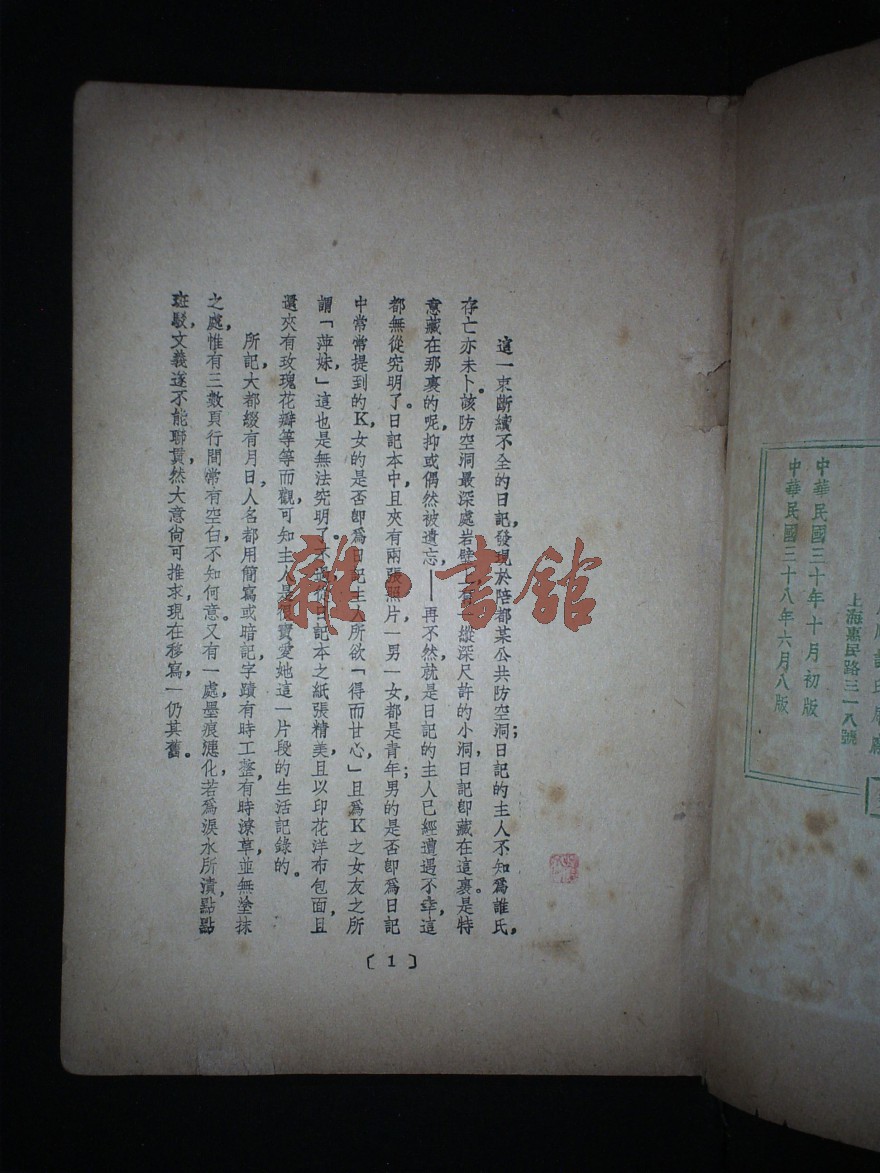 上海惠民路三一八號
中華民國三十年十月初版
中華民國三十八年六月八版
這一束斷續不全的日記,發現於陪都某公共防空洞;日記的主人不知爲誰氏,
存亡亦未卜。該防空洞最深處岩壁上有一縱深尺許的小洞,日記卽藏在這裏。是特
意藏在那裏的呢,抑或偶然被遺忘,——再不然,就是日記的主人已經遭遇不幸,這
都無從究明了。日記本中且夾有兩張照片,一男一女,都是青年;男的是否卽爲日記
中常常提到的K,女的是否卽爲日記主人所欲「得而甘心」且爲K之女友之所
謂「萍妹」,這也是無法究明了。不過從日記本之紙張精美,且以印花洋布包面,且
還夾有玫瑰花瓣等等而觀,可知主人是很寶愛她這一片段的生活記錄的。
所記,大都綴有月日,人名都用簡寫或暗記,字蹟有時工整,有時潦草,並無塗抹
之處,惟有三數頁行間常有空白,不知何意。又有一處,墨痕漶化,若爲淚水所漬,點點
斑駁,文義遂不能聯貫,然大意尙可推求,現在移寫,一仍其舊。
〔1〕
雜·書館